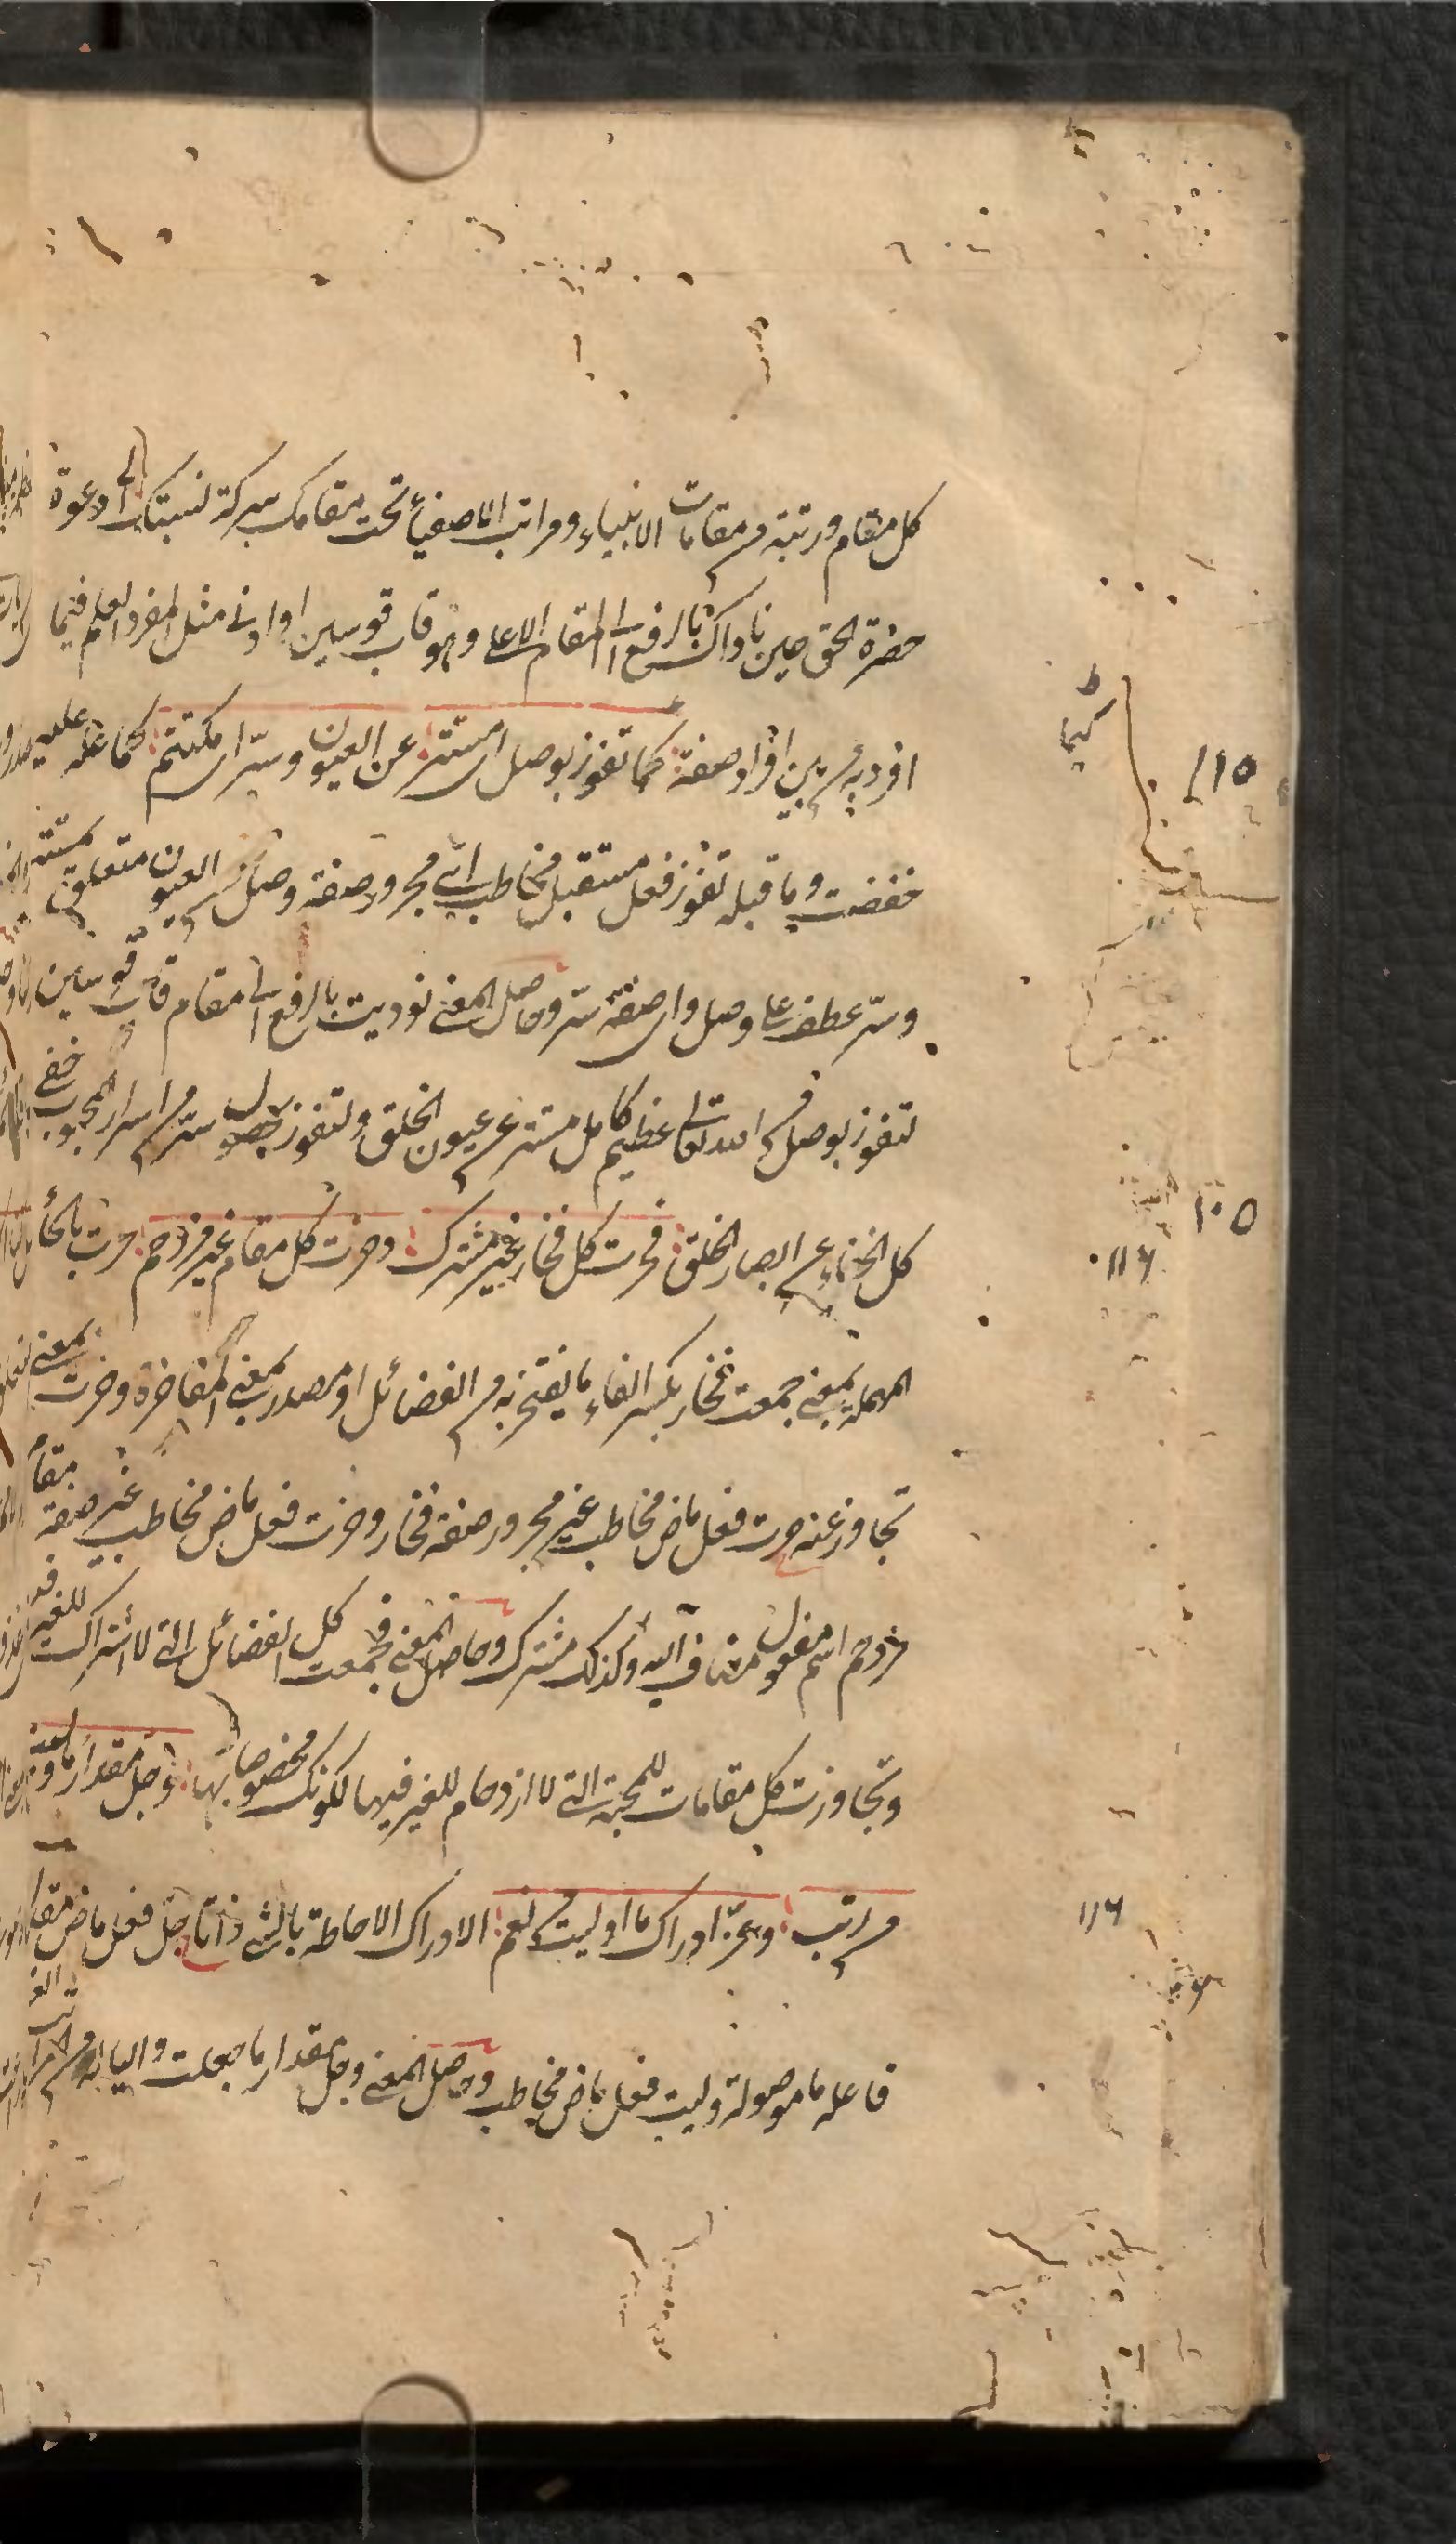 كل مقام ورتبة من مقامات الانبياء ومراتب الاصفياء تحت مقامك ببركة نسبتك الى دعوة
حضرة الحق حين ناداك بالرفع الى المقام الاعلى وهو قاب قوسين او ادنى مثل المفرد العلم فيما
افرد به من بين افراد صفة كيما تفوز بوصل اى مستتر عن العيون وسر اى مكتتم كما علم عليه
خفضت وما قبله تفوز فعل مستقبل مخاطب اى مجرور صفة وصل عن العيون متعلق مستتر
وسر عطف على وصل واى صفة سر وحاصل المعنى نوديت بالرفع الى مقام قاب قوسين
لتفوز بوصل من الله تعالى عظيم كامل مستتر عن عيون الخلق ولتفوز بحصول سر من اسرار المحبوب خفى
كل الخفاء عن ابصار الخلق فحزت كل فخار غير مشترك وجزت كل مقام غير مزدحم حزت بالحاء
المهملة بمعنى جمعت فخار بكسر الفاء ما يفتخر به من الفضائل او مصدر بمعنى المفاخرة وجزت بمعنى
تجاوز عنه حزت فعل ماض مخاطب غير مجرور صفة فخار وجزت فعل ماض مخاطب غير صفة مقام
مزدحم اسم مفعول مضاف اليه وكذلك مشترك وحاصل المعنى فجمعت كل الفضائل التى لا اشتراك للغير
وتجاوزت كل مقامات المحبة التى لا ازدحام للغير فيها لكونك مخصوصا بها وجل مقدار ما وليت
من رتب وعز ادراك ما اوليت من نعم الادراك الاحاطة بالشئ ذاتا جل فعل ماض مقدار
فاعله ما موصولة وليت فعل ماض مخاطب وحاصل المعنى وجل مقدار ما جعلت واليا له من
كيما
١١٥
١٠٥
١١٦
١١٦